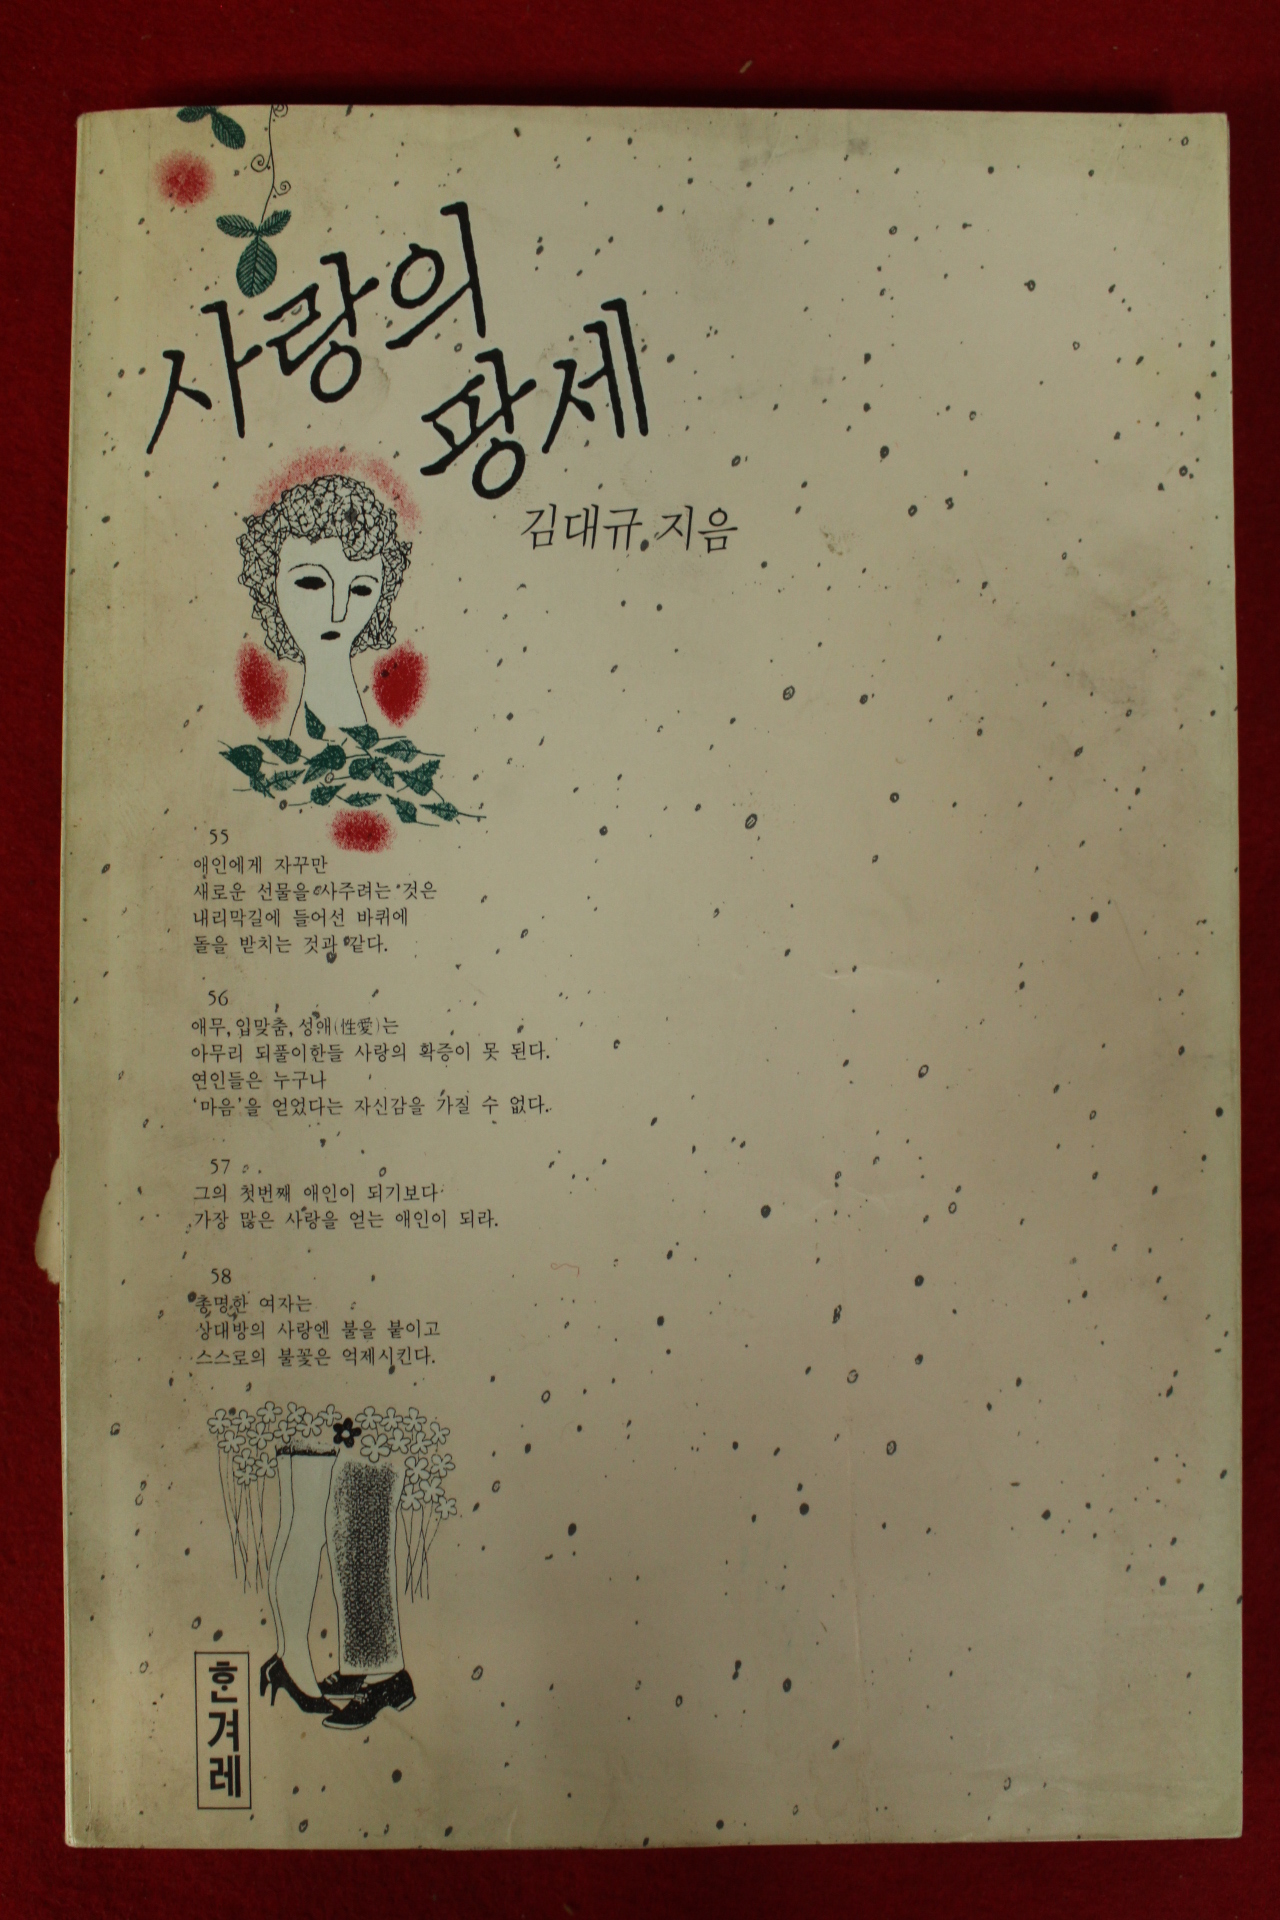 사랑의
팡세
김대규 지음
55
애인에게 자꾸만
새로운 선물을 사주려는 것은
내리막길에 들어선 바퀴에
돌을 받치는 것과 같다.
56
애무, 입맞춤, 성애(性愛)는
아무리 되풀이한들 사랑의 확증이 못 된다.
연인들은 누구나
‘마음’을 얻었다는 자신감을 가질 수 없다.
57
그의 첫번째 애인이 되기보다
가장 많은 사랑을 얻는 애인이 되라.
58
총명한 여자는
상대방의 사랑엔 불을 붙이고
스스로의 불꽃은 억제시킨다.
한겨레